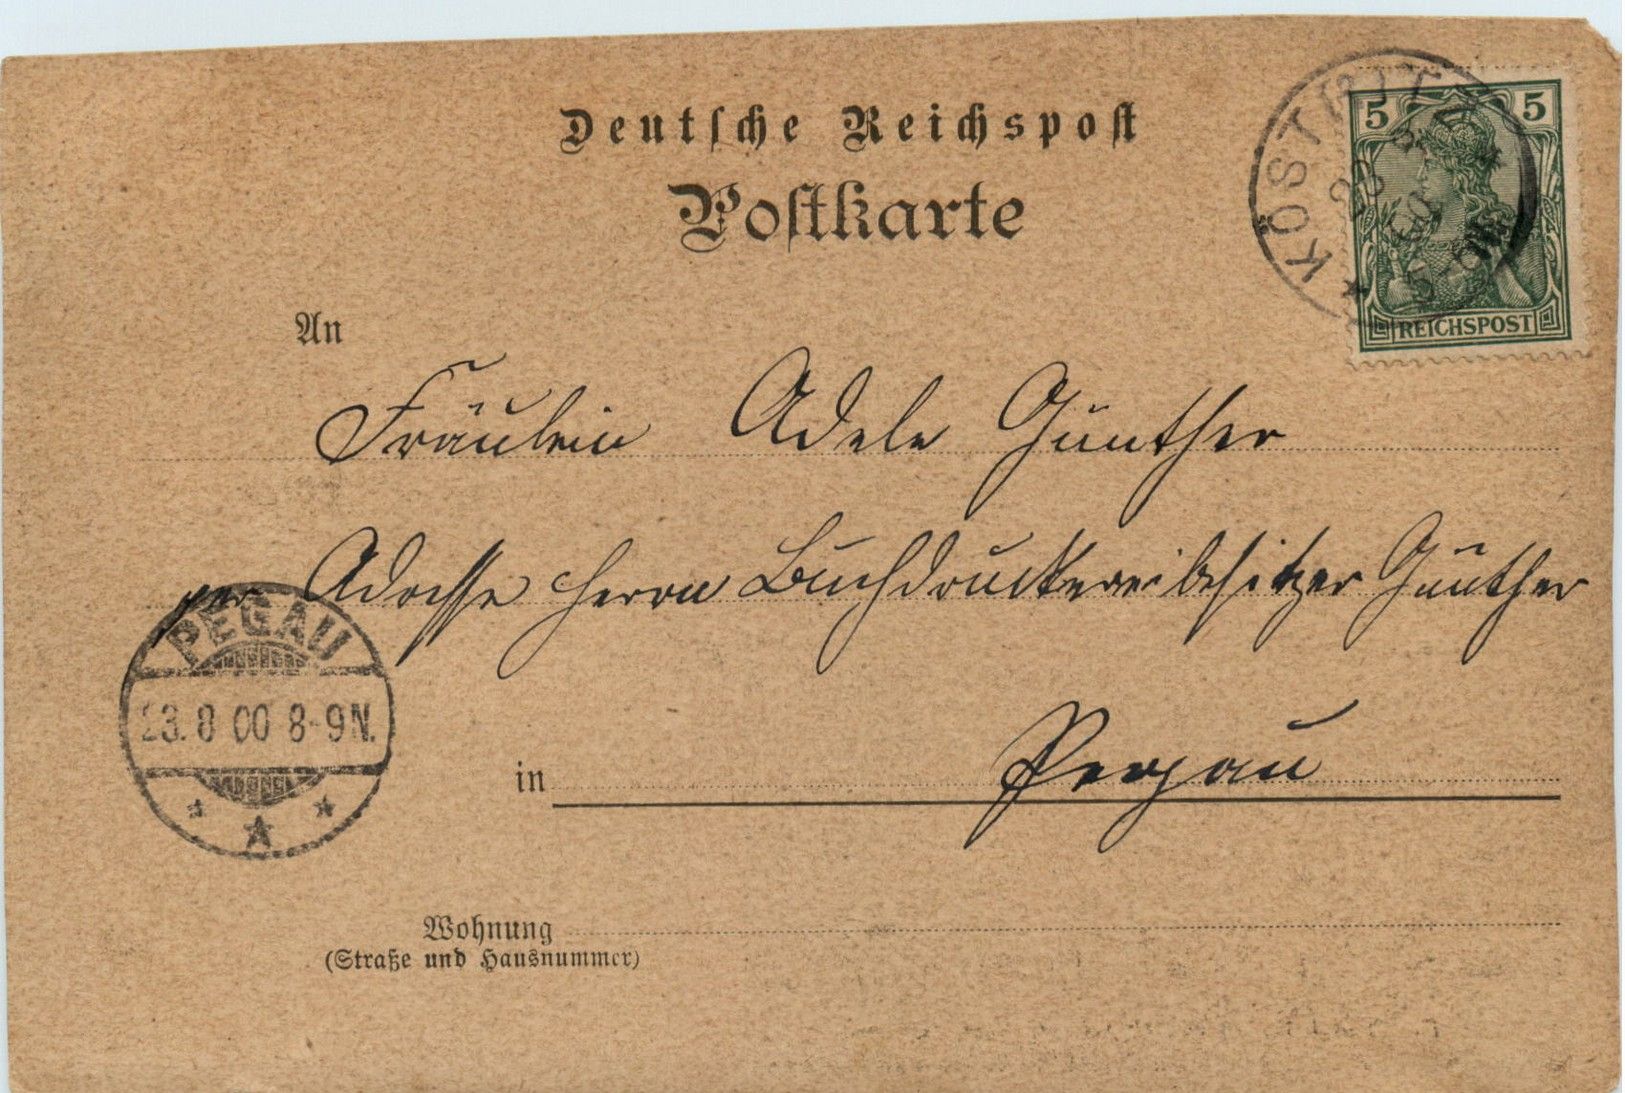 Deutsche Reichspost
Postkarte
5 5
REICHSPOST
KÖSTRITZ
An
Fräulein Adele Günther
per Adresse Herrn Buchdruckereibesitzer Günther
PEGAU
23. 8 00 8-9N.
in Pegau
Wohnung
(Straße und Hausnummer)